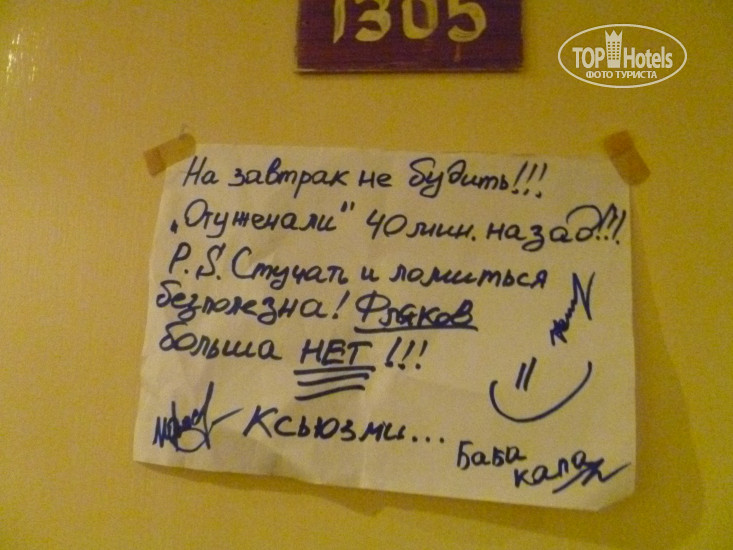 1305
TOP Hotels
ФОТО ТУРИСТА
На завтрак не будить!!!
„Отуженали" 40 мин. назад!!!
P.S. Стучать и ломиться
безполезна! Фляков
больша НЕТ!!!
Ксьюзми...
Баба
капа